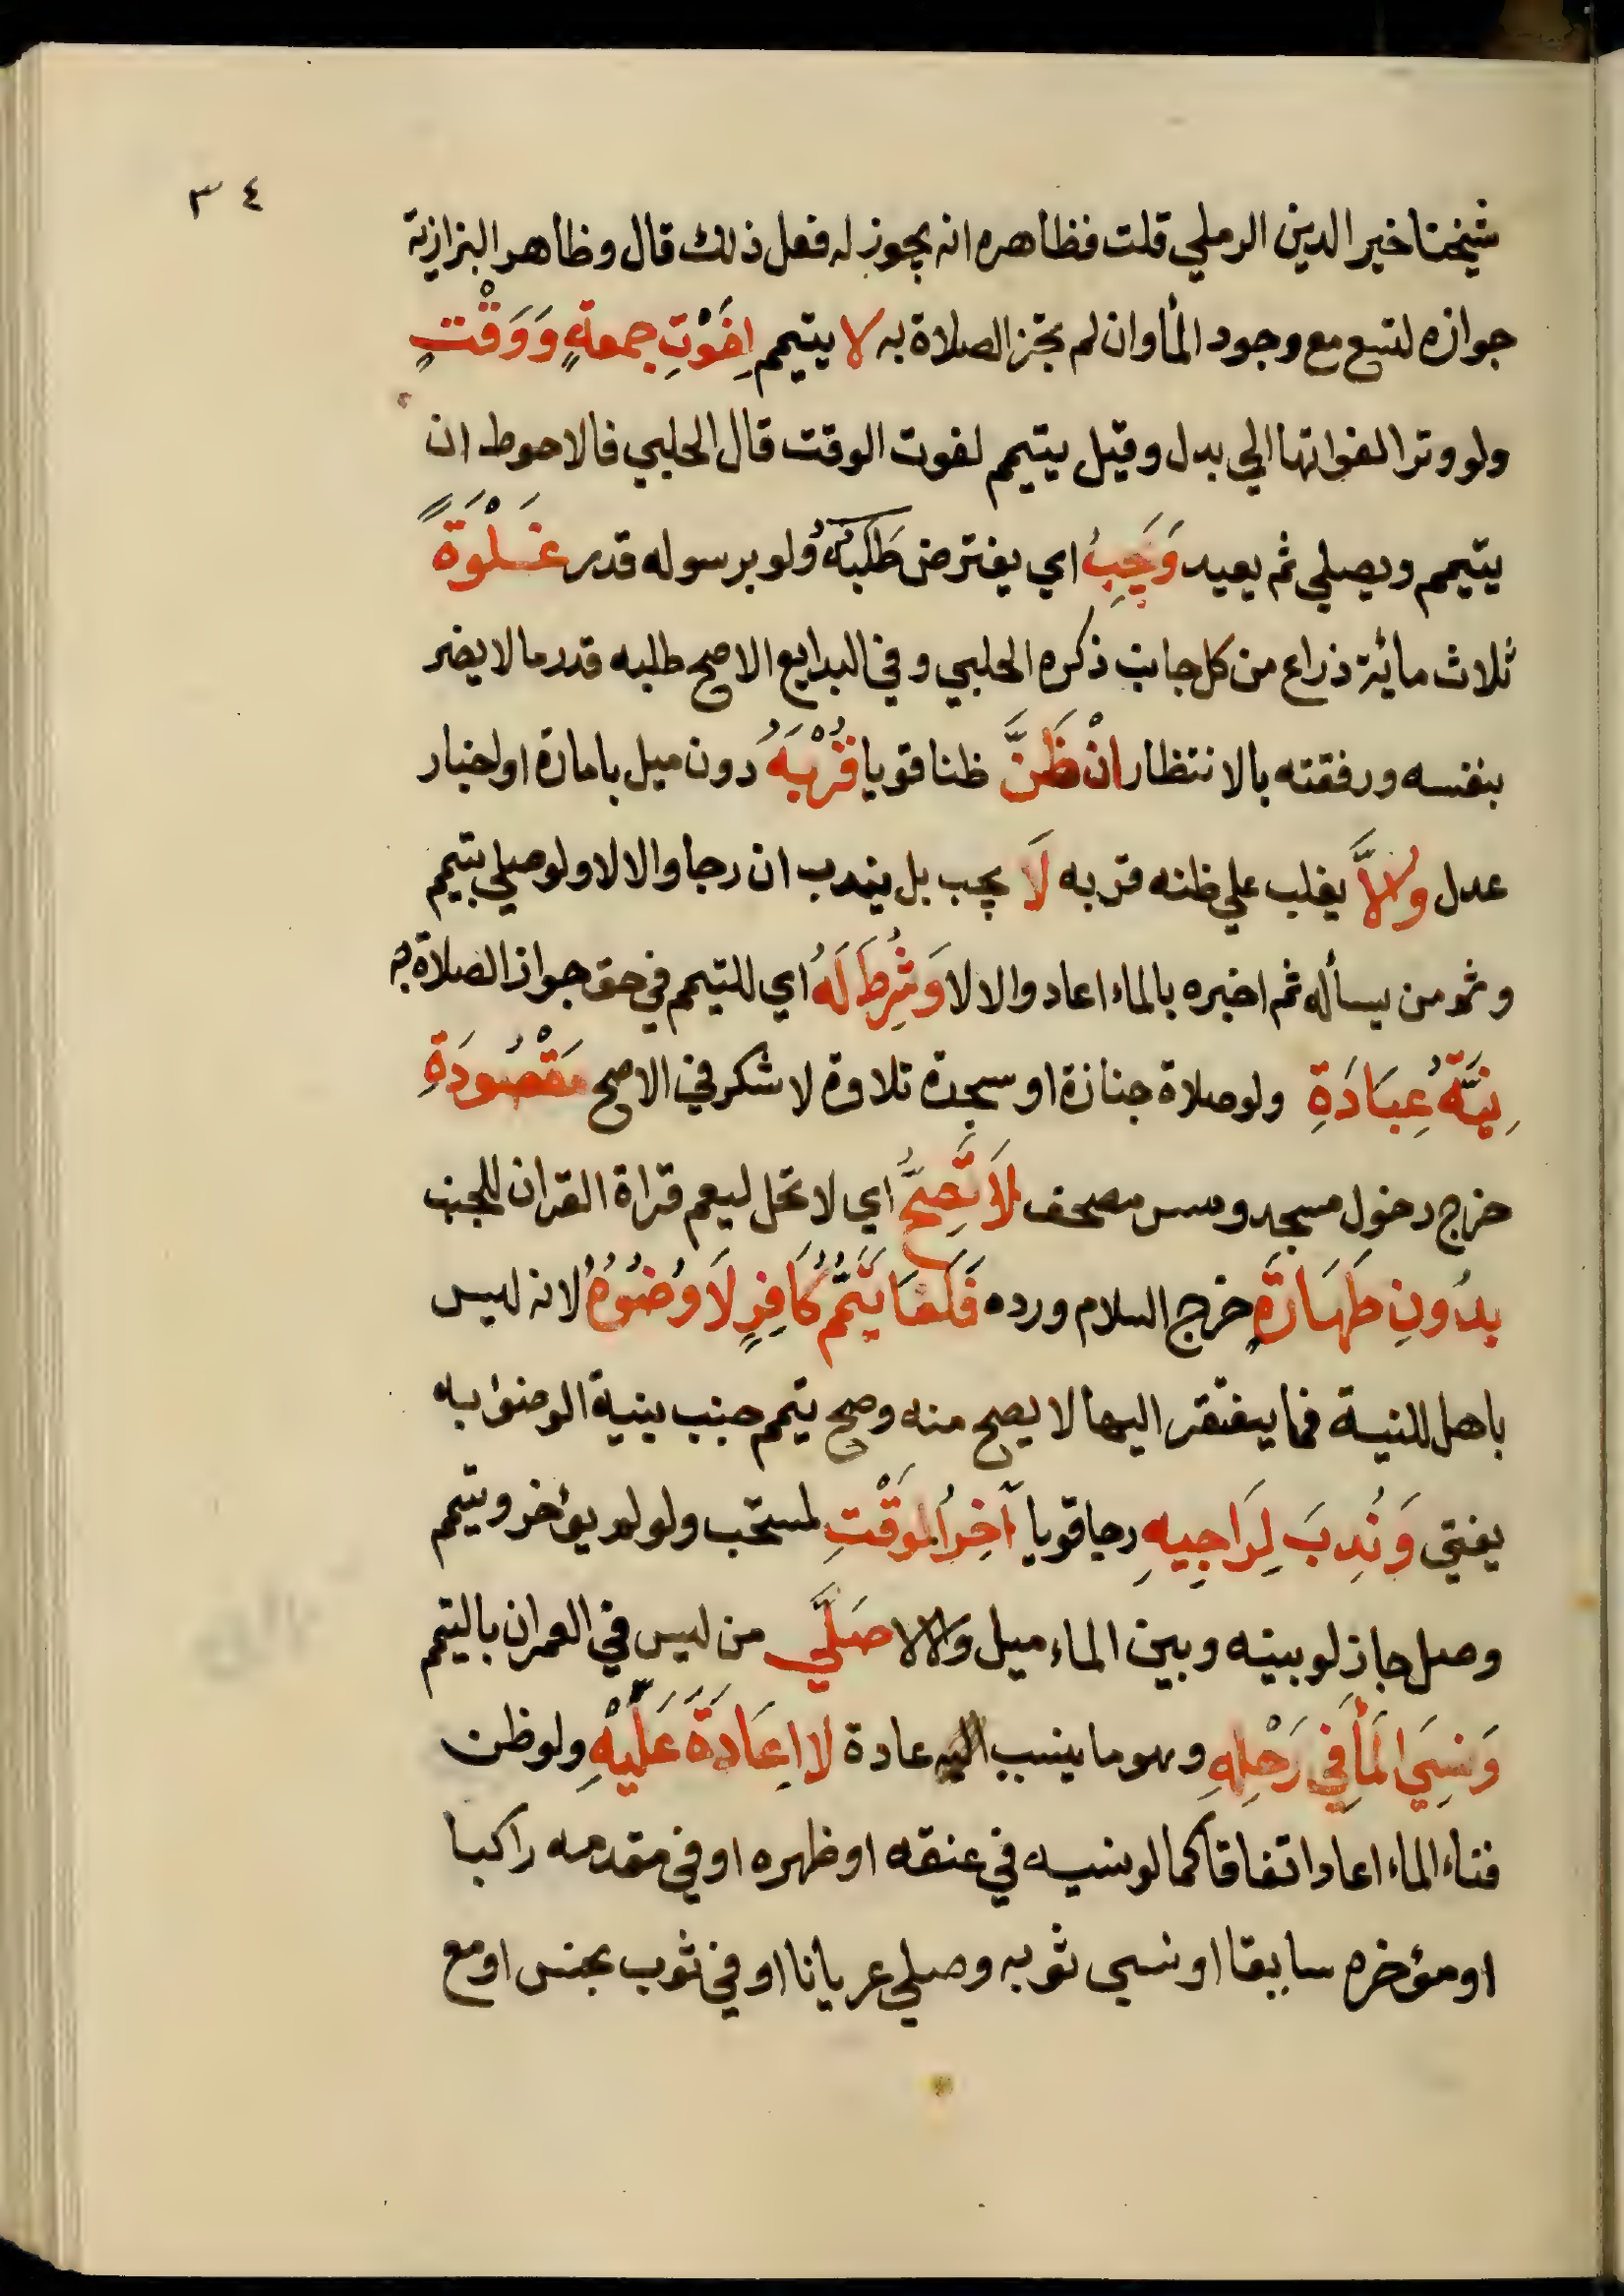 ٣٤
شيخنا خير الدين الرملي قلت فظاهره انه يجوز له فعل ذلك قال وظاهر البزازية
جوازه لتسع مع وجود المأ وان لم تجز الصلاة به لا يتيمم لِفَوْتِ جمعةٍ وَوَقْتٍ
ولو وترا لفواتها الي بدل وقيل يتيمم لفوت الوقت قال الحلبي فالاحوط ان
يتيمم ويصلي ثم يعيد وَيَجِبُ اي يفترض طَلَبُهُ ولو برسوله قدر غَلْوَةً
ثلاث مائة ذراع من كل جانب ذكره الحلبي وفي البدايع الاصح طلبه قدر ما لا يضر
بنفسه ورفقته بالانتظار انْ ظَنَّ ظنا قويا قُرْبَهُ دون ميل بامارة او اخبار
عدل والاَّ يغلب علي ظنه قربه لَا يجب بل يندب ان رجا والا لا ولو صلي بتيمم
وثمو من يسأله ثم اخبره بالماء اعاد والا لا وَشُرِطَ لَهُ اي للتيمم في حق جواز الصلاة به
نِيَّةُ عِبَادَةِ ولو صلاة جنازة او سجدة تلاوة لا شكر في الاصح مَقْصُودَةِ
خرج دخول مسجد ومس مصحف لَا تَصِحُّ اي لا تحل ليعم قراة القران للجنب
بِدُونِ طَهَارَةٍ خرج السلام ورده فَلَغَا تَيَمُّمُ كَافِرٍ لَا وُضُوُهُ لانه ليس
باهل للنية فما يفتقر اليها لا يصح منه وصح تيمم جنب بنية الوضوٰ به
يفتي وَنُدِبَ لِرَاجِيهِ رجا قويا آخِرُ الوَقْتِ لمستحب ولو لم يؤخر وتيمم
وصل جاز لو بينه وبين الماء ميل والالا صَلَّي من ليس في العمران بالتيمم
وَنَسِيَ المَأَ فِي رَحْلِهِ وهو ما ينسب اليه عادة لا اِعَادَةَ عَلَيْهِ ولو ظن
فناء الماء اعاد اتفاقا كما لو نسيه في عنقه او ظهره او في مقدمه راكبا
او مؤخره سابقا او نسي ثوبه وصلي عريانا او في ثوب نجس او مع